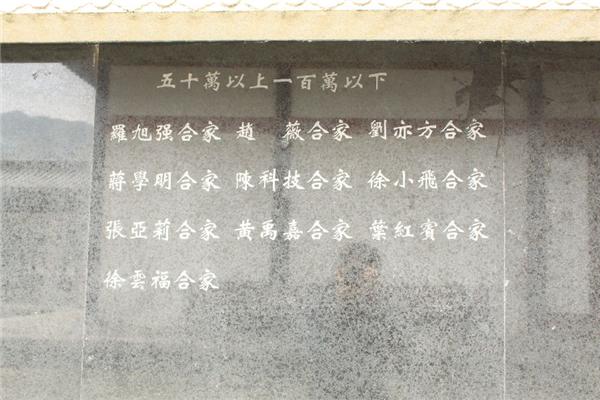 五十萬以上一百萬以下
羅旭强合家 趙　薇合家 劉亦方合家
蔣學明合家 陳科技合家 徐小飛合家
張亞莉合家 黃禹嘉合家 葉紅賓合家
徐雲福合家